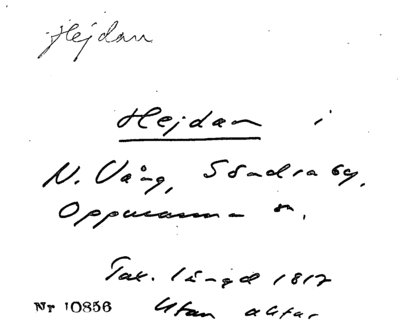 Hejdan
Hejdan i
N. Vång, Söndraby,
Oppmanna sn.
Tax. längd 1817
Nr 10856 Utan aktar